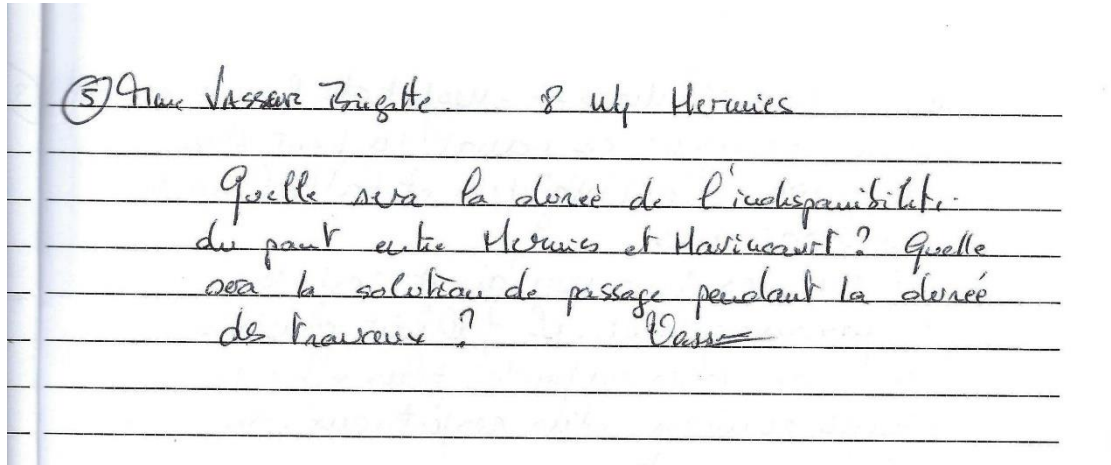 ⑤ Mme VASSEUR Brigitte 8 Hermies
Quelle sera la durée de l'indisponibilité
du pont entre Hermies et Havrincourt ? Quelle
sera la solution de passage pendant la durée
des travaux ?